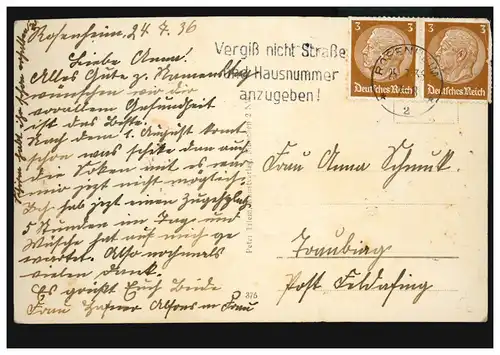 Rosenheim, 24.7.36
Liebe Anna!
Alles Gute z. Namenstag
wünschen wir dir
vorallem Gesundheit
ist das Beste.
Nach dem 1. August komt
schon was schike dan auch
die Soken mit es war
mir jezt nicht möglich.
hab jezt einen Zugehplatz
5 Stunden im Tag und
Wäsche hat auf mich ge
wartet. Also nochmals
vielen Dank.
Es grüßt Euch Beide
Frau Alfons u Frau
Vergiß nicht Straße
und Hausnummer
anzugeben!
3 3
Deutsches Reich Deutsches Reich
ROSENHEIM
2
376
Frau Anna Schmuk.
Traubing
Post Feldafing